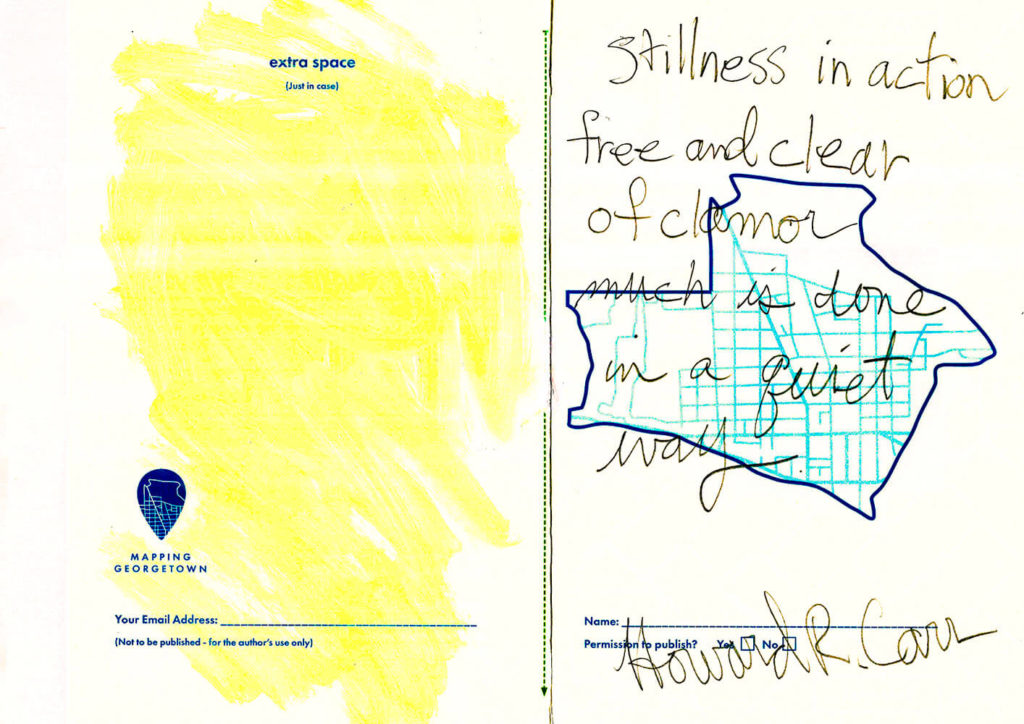 extra space
(Just in case)
MAPPING
GEORGETOWN
Your Email Address:
(Not to be published - for the author's use only)
stillness in action
free and clear
of clamor
much is done
in a quiet
way.
Name:
Permission to publish? Yes No
Howard R. Carr